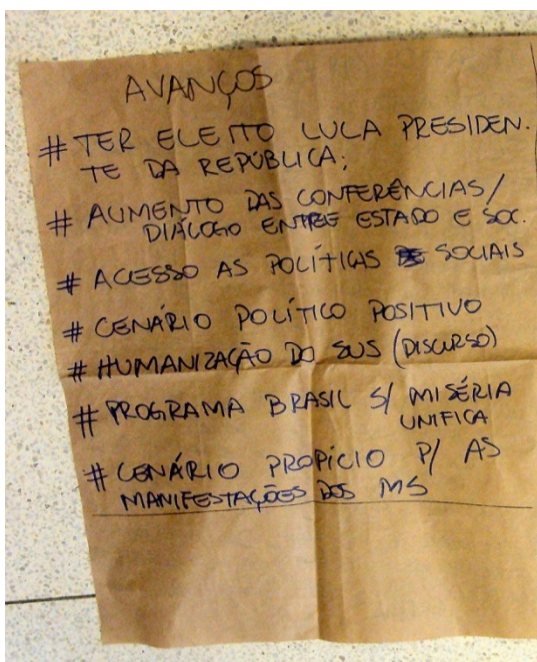 AVANÇOS
# TER ELEITO LULA PRESIDEN.
TE DA REPÚBLICA;
# AUMENTO DAS CONFERÊNCIAS/
DIÁLOGO ENTRE ESTADO E SOC.
# ACESSO AS POLÍTICAS SOCIAIS
# CENÁRIO POLÍTICO POSITIVO
# HUMANIZAÇÃO DO SUS (DISCURSO)
# PROGRAMA BRASIL S/ MISÉRIA
UNIFICA
# CENÁRIO PROPÍCIO P/ AS
MANIFESTAÇÕES DOS MS